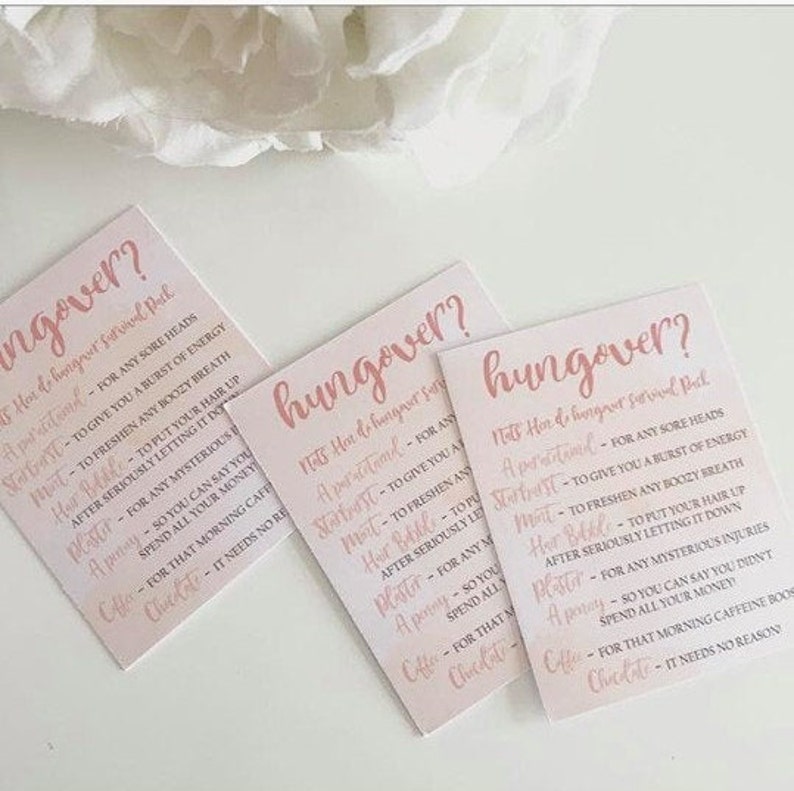 hungover?
Nats Hen do hangover survival Pack
A paracetamol – FOR ANY SORE HEADS
Starburst – TO GIVE YOU A BURST OF ENERGY
Mint – TO FRESHEN ANY BOOZY BREATH
Hair Bobble – TO PUT YOUR HAIR UP
AFTER SERIOUSLY LETTING IT DOWN
Plaster – FOR ANY MYSTERIOUS
A penny – SO YOU CAN SAY YOU
SPEND ALL YOUR MONEY!
Coffee – FOR THAT MORNING CAFFEINE
Chocolate – IT NEEDS NO REASON!
hungover?
Nats Hen do hangover survival
A paracetamol – FOR ANY
Starburst – TO GIVE YOU A
Mint – TO FRESHEN
Hair Bobble – TO PUT
AFTER SERIOUSLY
Plaster – FOR ANY
A penny – SO YOU
SPEND ALL
Coffee – FOR THAT
Chocolate –
hungover?
Nats Hen do hangover survival Pack
A paracetamol – FOR ANY SORE HEADS
Starburst – TO GIVE YOU A BURST OF ENERGY
Mint – TO FRESHEN ANY BOOZY BREATH
Hair Bobble – TO PUT YOUR HAIR UP
AFTER SERIOUSLY LETTING IT DOWN
Plaster – FOR ANY MYSTERIOUS INJURIES
A penny – SO YOU CAN SAY YOU DIDN'T
SPEND ALL YOUR MONEY!
Coffee – FOR THAT MORNING CAFFEINE BOOS
Chocolate – IT NEEDS NO REASON!